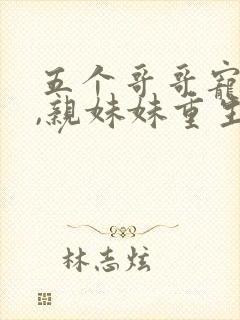 五个哥哥宠
,亲妹妹重生
林志炫